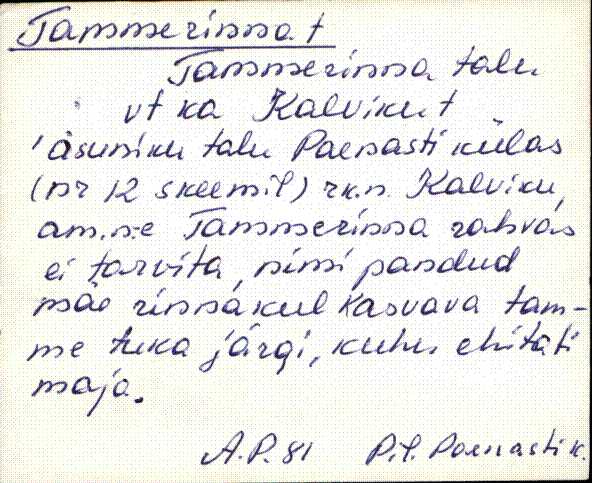 Tammerinna t
Tammerinna talu
vt ka Kalviku t
'asuniku talu Paenasti külas
(nr 12 skeemil) rk.n. Kalviku,
am.n-e Tammerinna rahvas
ei tarvita, nimi pandud
mäe rinnakul kasvava tam-
me tuka järgi, kuhu ehitati
maja.
A.P. 81 Pil. Paenasti k.